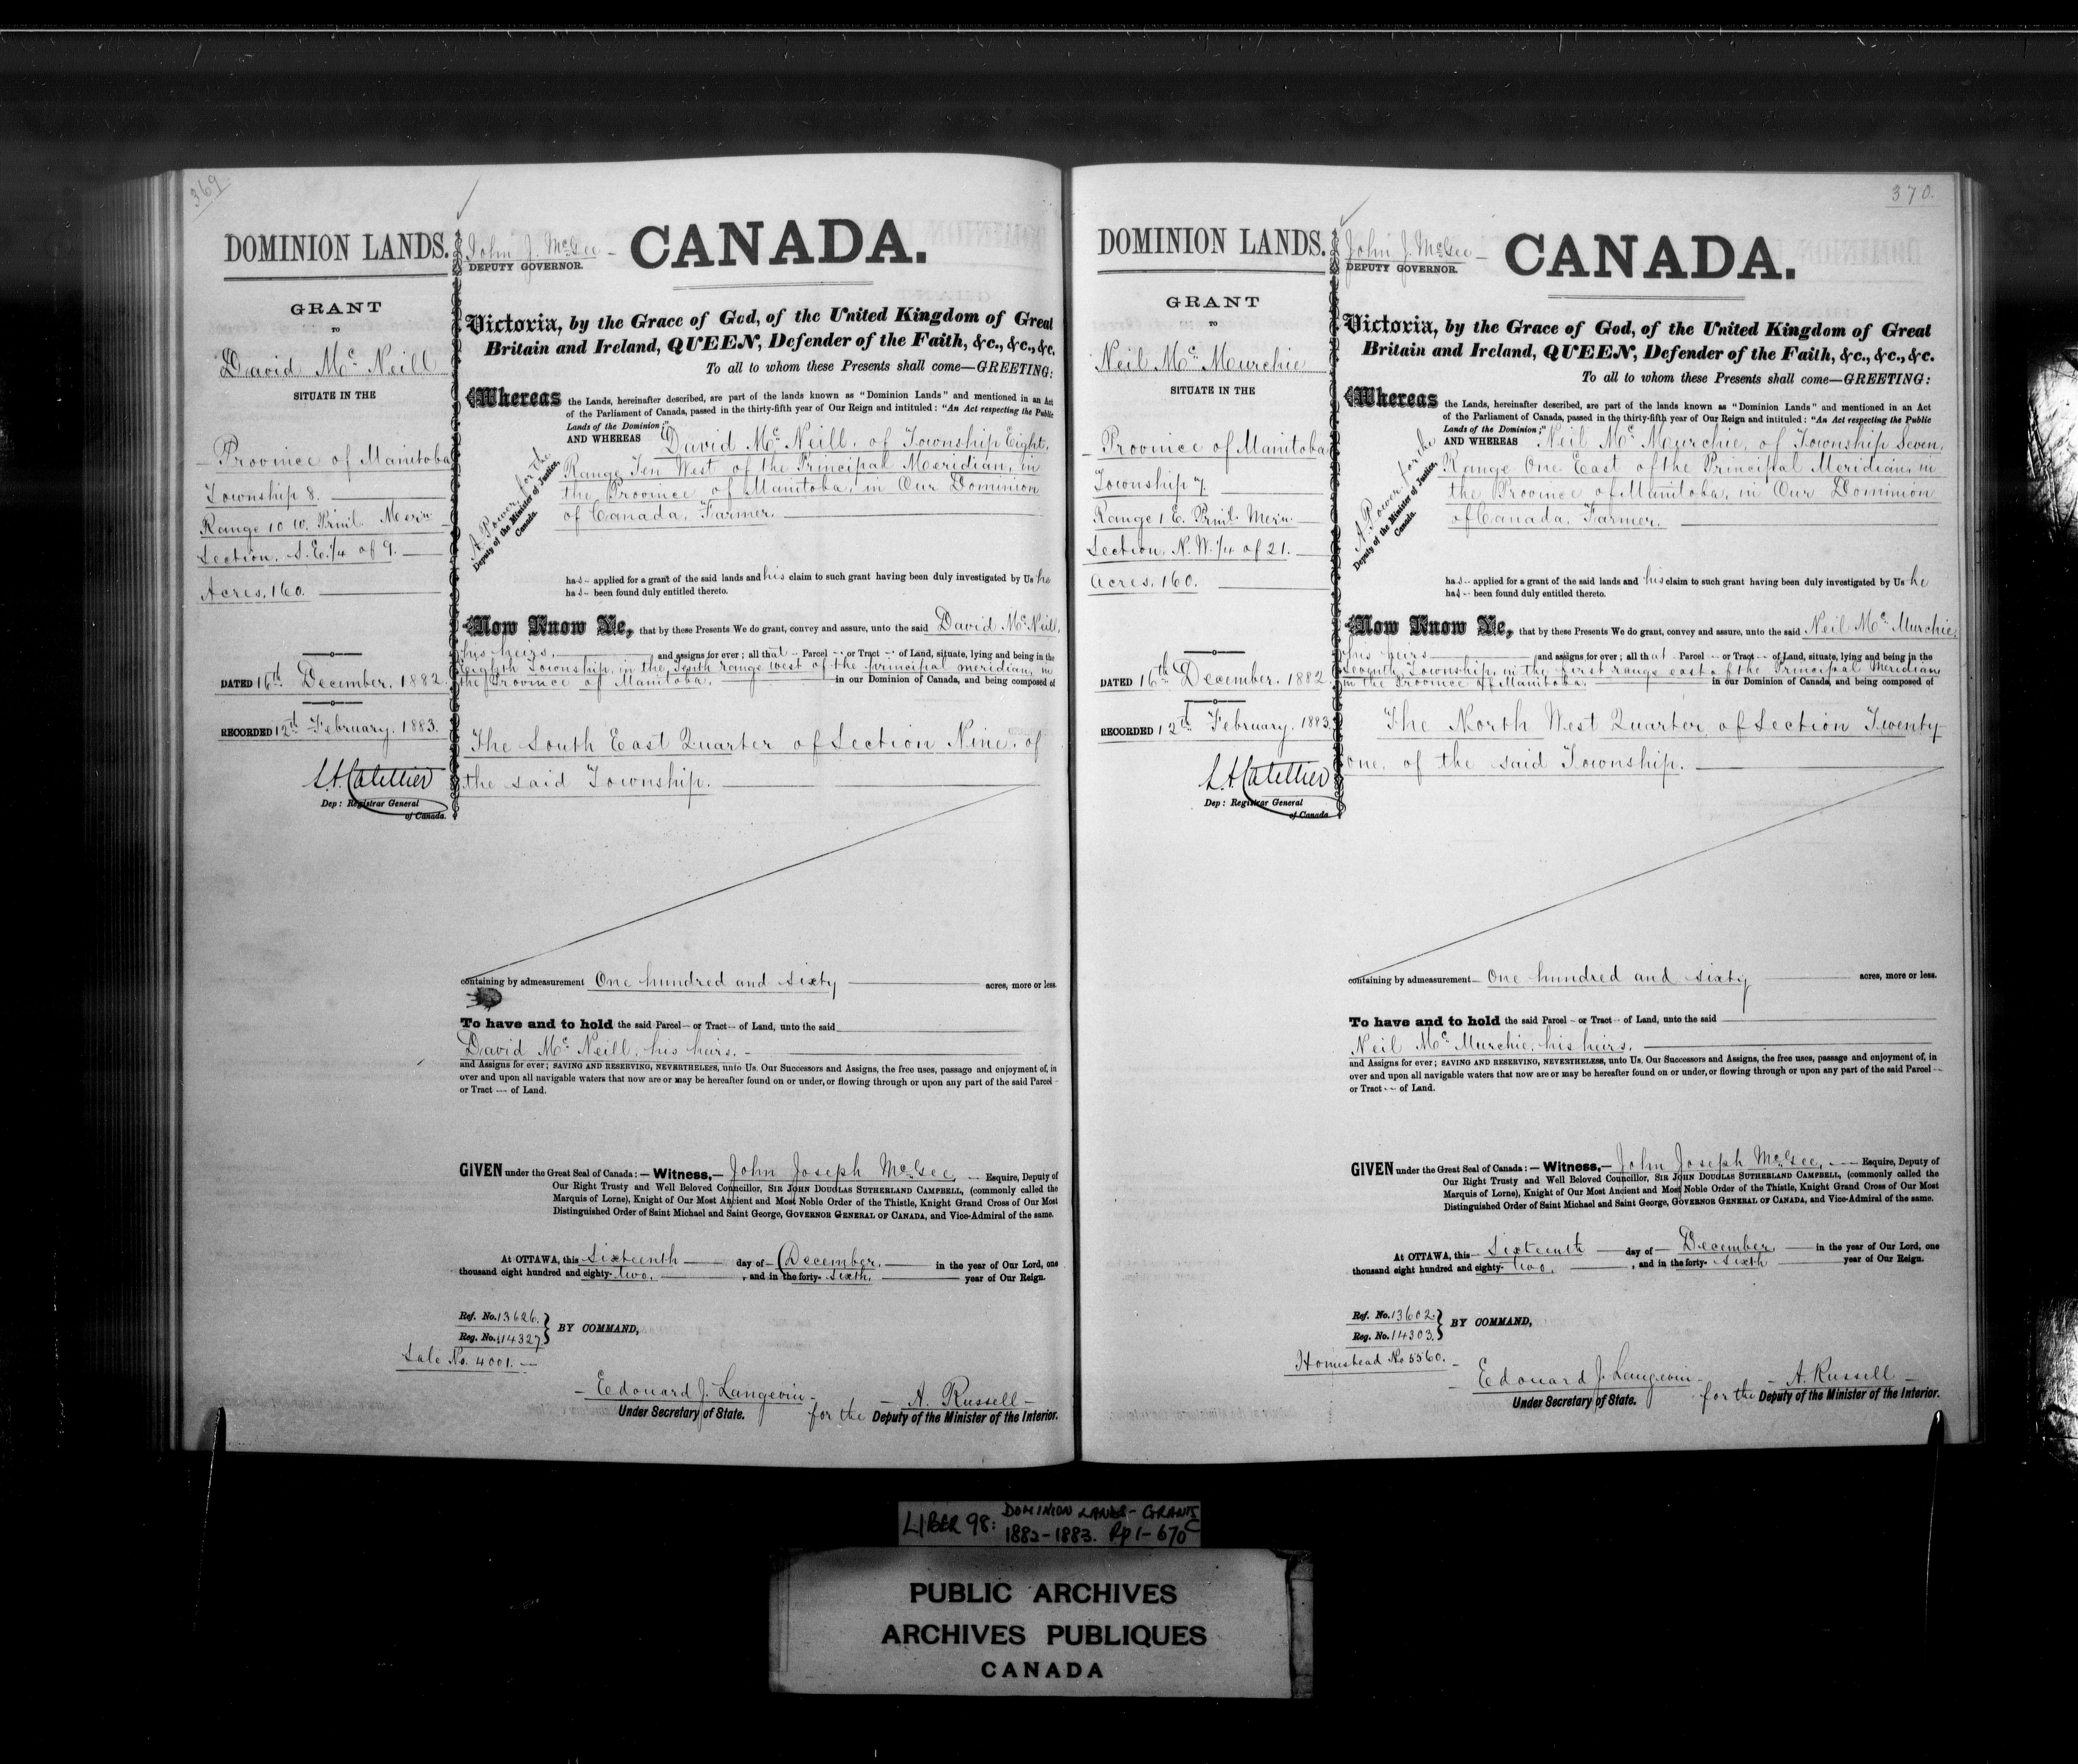 369.
DOMINION LANDS.
GRANT
TO
David Mc Neill
SITUATE IN THE
Province of Manitoba
Township 8.
Range 10 W. Prinl. Mern
Section, S.E. 1/4 of 9.
Acres, 160.
DATED 16th December, 1882.
RECORDED 12th February, 1883.
L.A. Catellier
Dep: Registrar General
of Canada.
John J. McGee
DEPUTY GOVERNOR.
CANADA.
Victoria, by the Grace of God, of the United Kingdom of Great
Britain and Ireland, QUEEN, Defender of the Faith, &c., &c., &c.
To all to whom these Presents shall come—GREETING:
Whereas the Lands, hereinafter described, are part of the lands known as "Dominion Lands" and mentioned in an Act
of the Parliament of Canada, passed in the thirty-fifth year of Our Reign and intituled: "An Act respecting the Public
Lands of the Dominion;"
AND WHEREAS David Mc Neill, of Township Eight,
Range Ten West of the Principal Meridian, in
the Province of Manitoba, in Our Dominion
of Canada, Farmer.
A. Power, for the
Deputy of the Minister of Justice,
Canada.
has applied for a grant of the said lands and his claim to such grant having been duly investigated by Us he
has been found duly entitled thereto.
Now Know Ye, that by these Presents We do grant, convey and assure, unto the said David Mc Neill,
his heirs, and assigns for ever; all that Parcel or Tract of Land, situate, lying and being in the
Eighth Township, in the Tenth range west of the principal meridian, in
the Province of Manitoba. in our Dominion of Canada, and being composed of
The South East Quarter of Section Nine, of
the said Township.
containing by admeasurement One hundred and sixty acres, more or less.
To have and to hold the said Parcel or Tract of Land, unto the said
David Mc Neill, his heirs.
and Assigns for ever; SAVING AND RESERVING, NEVERTHELESS, unto Us, Our Successors and Assigns, the free uses, passage and enjoyment of, in
over and upon all navigable waters that now are or may be hereafter found on or under, or flowing through or upon any part of the said Parcel
or Tract of Land.
GIVEN under the Great Seal of Canada:—Witness,—John Joseph McGee, Esquire, Deputy of
Our Right Trusty and Well Beloved Councillor, SIR JOHN DOUGLAS SUTHERLAND CAMPBELL, (commonly called the
Marquis of Lorne), Knight of Our Most Ancient and Most Noble Order of the Thistle, Knight Grand Cross of Our Most
Distinguished Order of Saint Michael and Saint George, GOVERNOR GENERAL OF CANADA, and Vice-Admiral of the same.
At OTTAWA, this Sixteenth day of December, in the year of Our Lord, one
thousand eight hundred and eighty-two, and in the forty-sixth, year of Our Reign.
Ref. No. 13626.
Reg. No. 14327
BY COMMAND,
Sale No. 4001.
Edouard J. Langevin
Under Secretary of State.
A. Russell
for the Deputy of the Minister of the Interior.
370.
DOMINION LANDS.
GRANT
TO
Neil Mc Murchie
SITUATE IN THE
Province of Manitoba
Township 7.
Range 1 E. Prinl. Mern
Section, N.W. 1/4 of 21.
Acres, 160.
DATED 16th December, 1882
RECORDED 12th February, 1883
L.A. Catellier
Dep: Registrar General
of Canada
John J. McGee
DEPUTY GOVERNOR.
CANADA.
Victoria, by the Grace of God, of the United Kingdom of Great
Britain and Ireland, QUEEN, Defender of the Faith, &c., &c., &c.
To all to whom these Presents shall come—GREETING:
Whereas the Lands, hereinafter described, are part of the lands known as "Dominion Lands" and mentioned in an Act
of the Parliament of Canada, passed in the thirty-fifth year of Our Reign and intituled: "An Act respecting the Public
Lands of the Dominion;"
AND WHEREAS Neil Mc Murchie, of Township Seven,
Range One East of the Principal Meridian, in
the Province of Manitoba, in Our Dominion
of Canada, Farmer.
A. Power, for the
Deputy of the Minister of Justice,
Canada.
has applied for a grant of the said lands and his claim to such grant having been duly investigated by Us he
has been found duly entitled thereto.
Now Know Ye, that by these Presents We do grant, convey and assure, unto the said Neil Mc Murchie,
his heirs and assigns for ever; all that Parcel or Tract of Land, situate, lying and being in the
Seventh Township, in the first range east of the Principal Meridian
in the Province of Manitoba. in our Dominion of Canada, and being composed of
The North West Quarter of Section Twenty
one, of the said Township.
containing by admeasurement One hundred and sixty acres, more or less.
To have and to hold the said Parcel or Tract of Land, unto the said
Neil Mc Murchie, his heirs.
and Assigns for ever; SAVING AND RESERVING, NEVERTHELESS, unto Us, Our Successors and Assigns, the free uses, passage and enjoyment of, in
over and upon all navigable waters that now are or may be hereafter found on or under, or flowing through or upon any part of the said Parcel
or Tract of Land.
GIVEN under the Great Seal of Canada:—Witness,—John Joseph McGee, Esquire, Deputy of
Our Right Trusty and Well Beloved Councillor, SIR JOHN DOUGLAS SUTHERLAND CAMPBELL, (commonly called the
Marquis of Lorne), Knight of Our Most Ancient and Most Noble Order of the Thistle, Knight Grand Cross of Our Most
Distinguished Order of Saint Michael and Saint George, GOVERNOR GENERAL OF CANADA, and Vice-Admiral of the same.
At OTTAWA, this Sixteenth day of December in the year of Our Lord, one
thousand eight hundred and eighty-two, and in the forty-sixth year of Our Reign.
Ref. No. 13602.
Reg. No. 14303.
BY COMMAND,
Homestead No 5560.
Edouard J. Langevin
Under Secretary of State.
A. Russell
for the Deputy of the Minister of the Interior.
LIBER 98: DOMINION LANDS - GRANTS
1882-1883. Pp 1-670C
PUBLIC ARCHIVES
ARCHIVES PUBLIQUES
CANADA